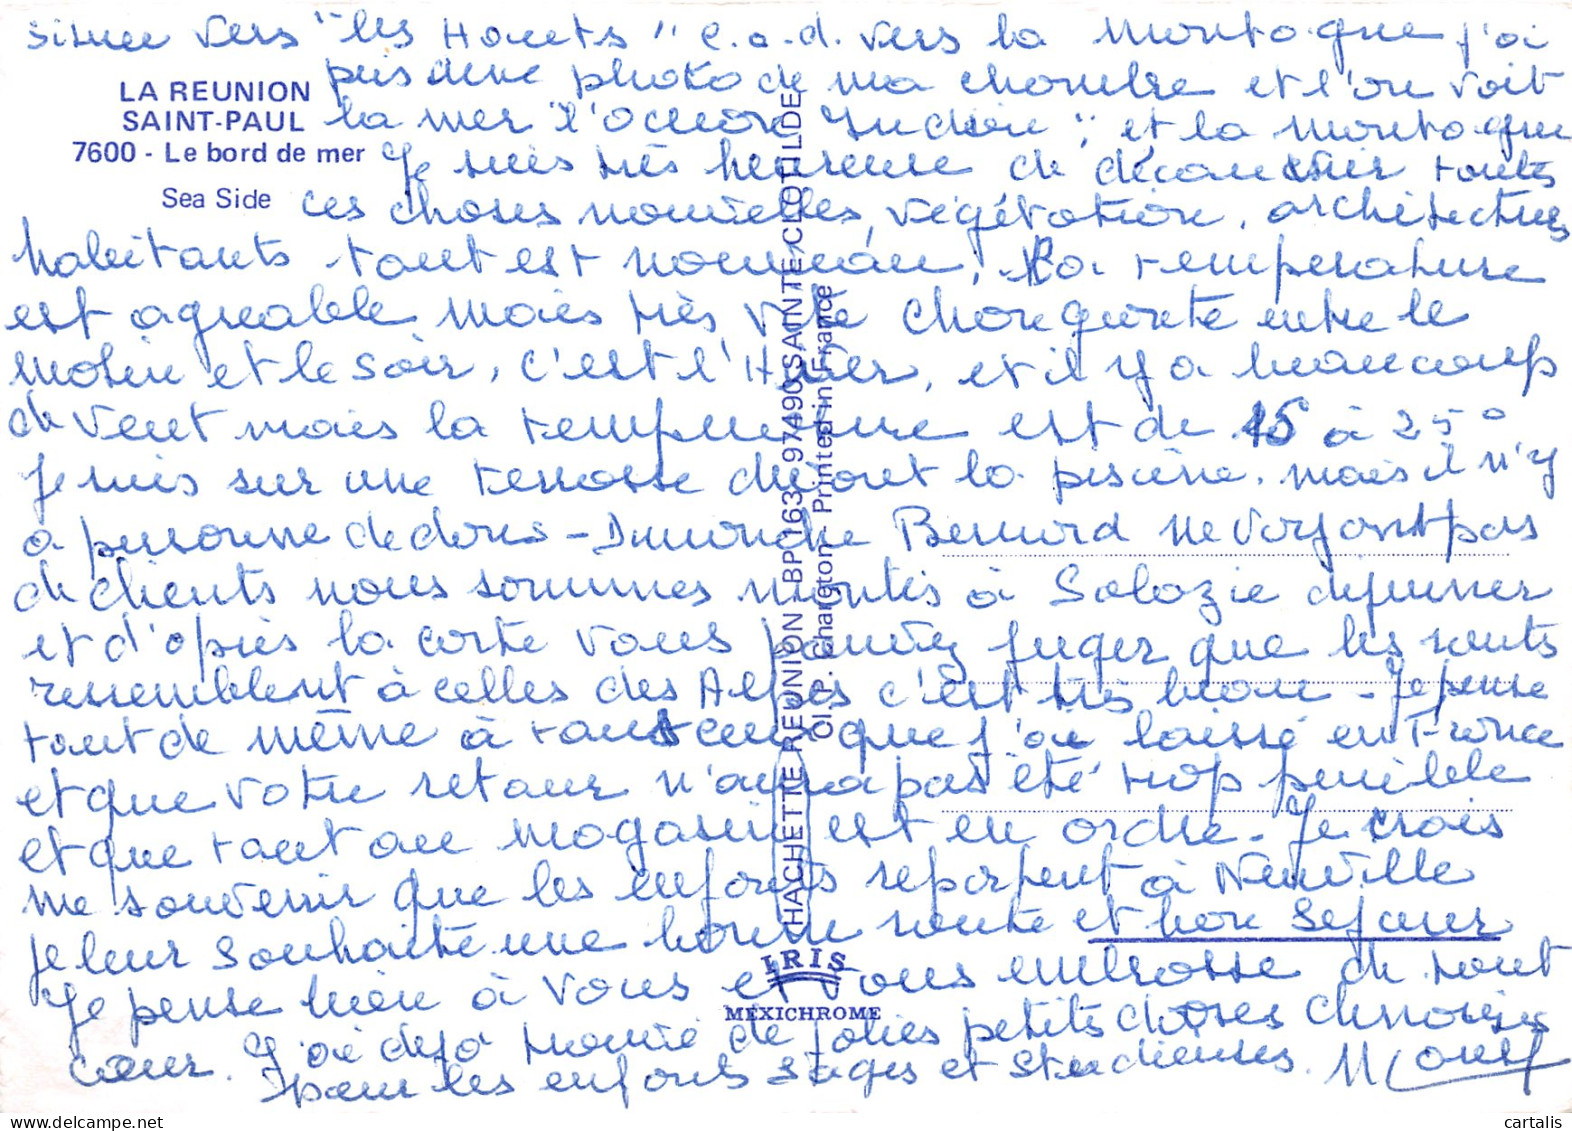 située vers "les Hauts" c.a.d. vers la montagne j'ai
pris une photo de ma chambre et l'on voit
LA REUNION
SAINT-PAUL
7600 - Le bord de mer
Sea Side
la mer "l'océan Indien", et la montagne
Je suis très heureuse de découvrir toutes
ces choses nouvelles, végétation, architectures
habitants tout est nouveau, La température
est agréable mais très vite changeante entre le
matin et le soir, c'est l'Hiver, et il y a beaucoup
de vent mais la température est de 15 à 25°
Je suis sur une terrasse devant la piscine. mais il n'y
a personne dedans - Dimanche Bernard ne voyant pas
de clients nous sommes montés à Salazie déjeuner
et d'après la carte vous pouvez juger que les routes
ressemblent à celles des Alpes c'est très beau - Je pense
tout de même à tous ceux que j'ai laissé en France
et que votre retour n'aura pas été trop pénible
et que tout au magasin est en ordre - Je crois
me souvenir que les enfants repartent à Neuville
je leur souhaite une bonne route et bon séjour
Je pense bien à vous et vous embrasse de tout
cœur. J'ai déjà trouvé de jolies petites choses chinoises
pour les enfants sages et studieuses.
HACHETTE REUNION - BP 163 - 97490 SAINTE-CLOTILDE
Printed in France
IRIS
MEXICHROME
cartalis